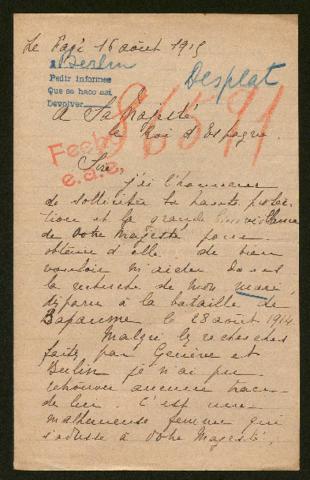 Le Fajè 16 août 1915
a Berlin
Pedir informes
Que se haco asi
Devolver
Desplat
86591
Fecho
e.a.e.
A Sa Majesté
le Roi d'Espagne.
Sire,
j'ai l'honneur
de solliciter la haute protec
tion et la grande bienveillance
de Votre Majesté pour
obtenir d'elle de bien
vouloir m'aider dans
la recherche de mon mari,
disparu à la bataille de
Bapaume le 28 août 1914
Malgré les recherches
faites par Genève et
Berlin je n'ai pu
retrouver aucune trace
de lui. C'est une
malheureuse femme qui
s'adresse à Votre Majesté.